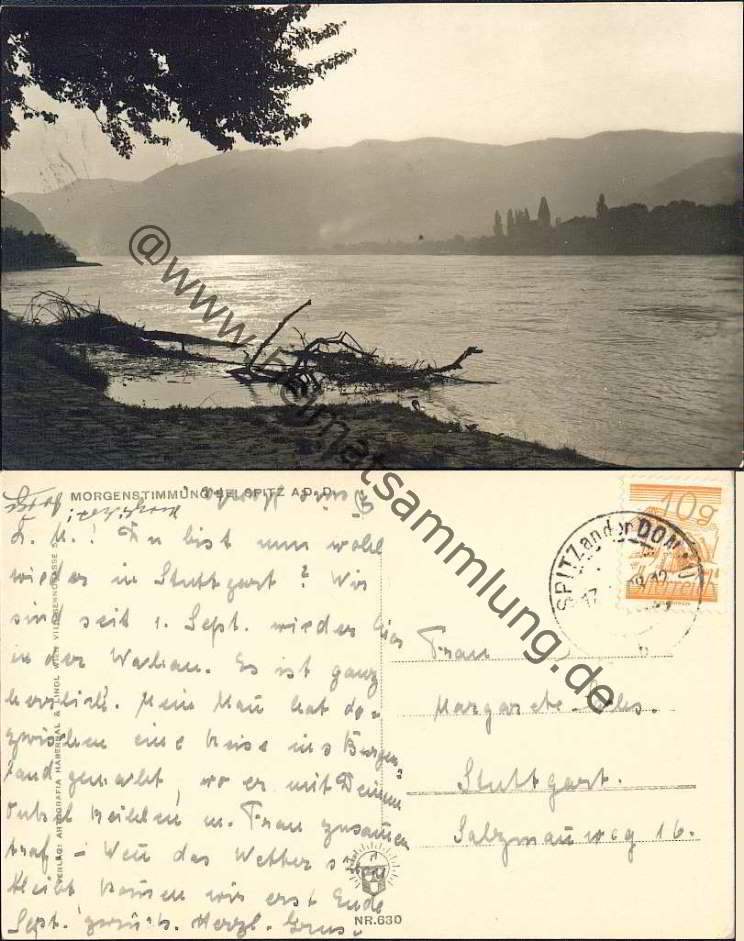 @www.heimatsammlung.de
MORGENSTIMMUNG BEI SPITZ A.D.D.
L. M.! Du bist nun wohl
wieder in Stuttgart? Wir
sind seit 1. Sept. wieder hier
in der Wachau. Es ist ganz
herrlich. Mein Mann hat da-
zwischen eine Reise ins Burgen-
land gemacht, wo er mit Deinem
Onkel m. Frau zusammen
traf – Wenn das Wetter schön
bleibt, kommen wir erst Ende
Sept. zurück. Herzl. Grus
VERLAG: ARTOGRAFIA HABERDAL & LINDL WIEN VII
NR. 630
10g
SPITZ an der DONAU
17
Frau
Margarete
Stuttgart.
Salzmannweg 16.